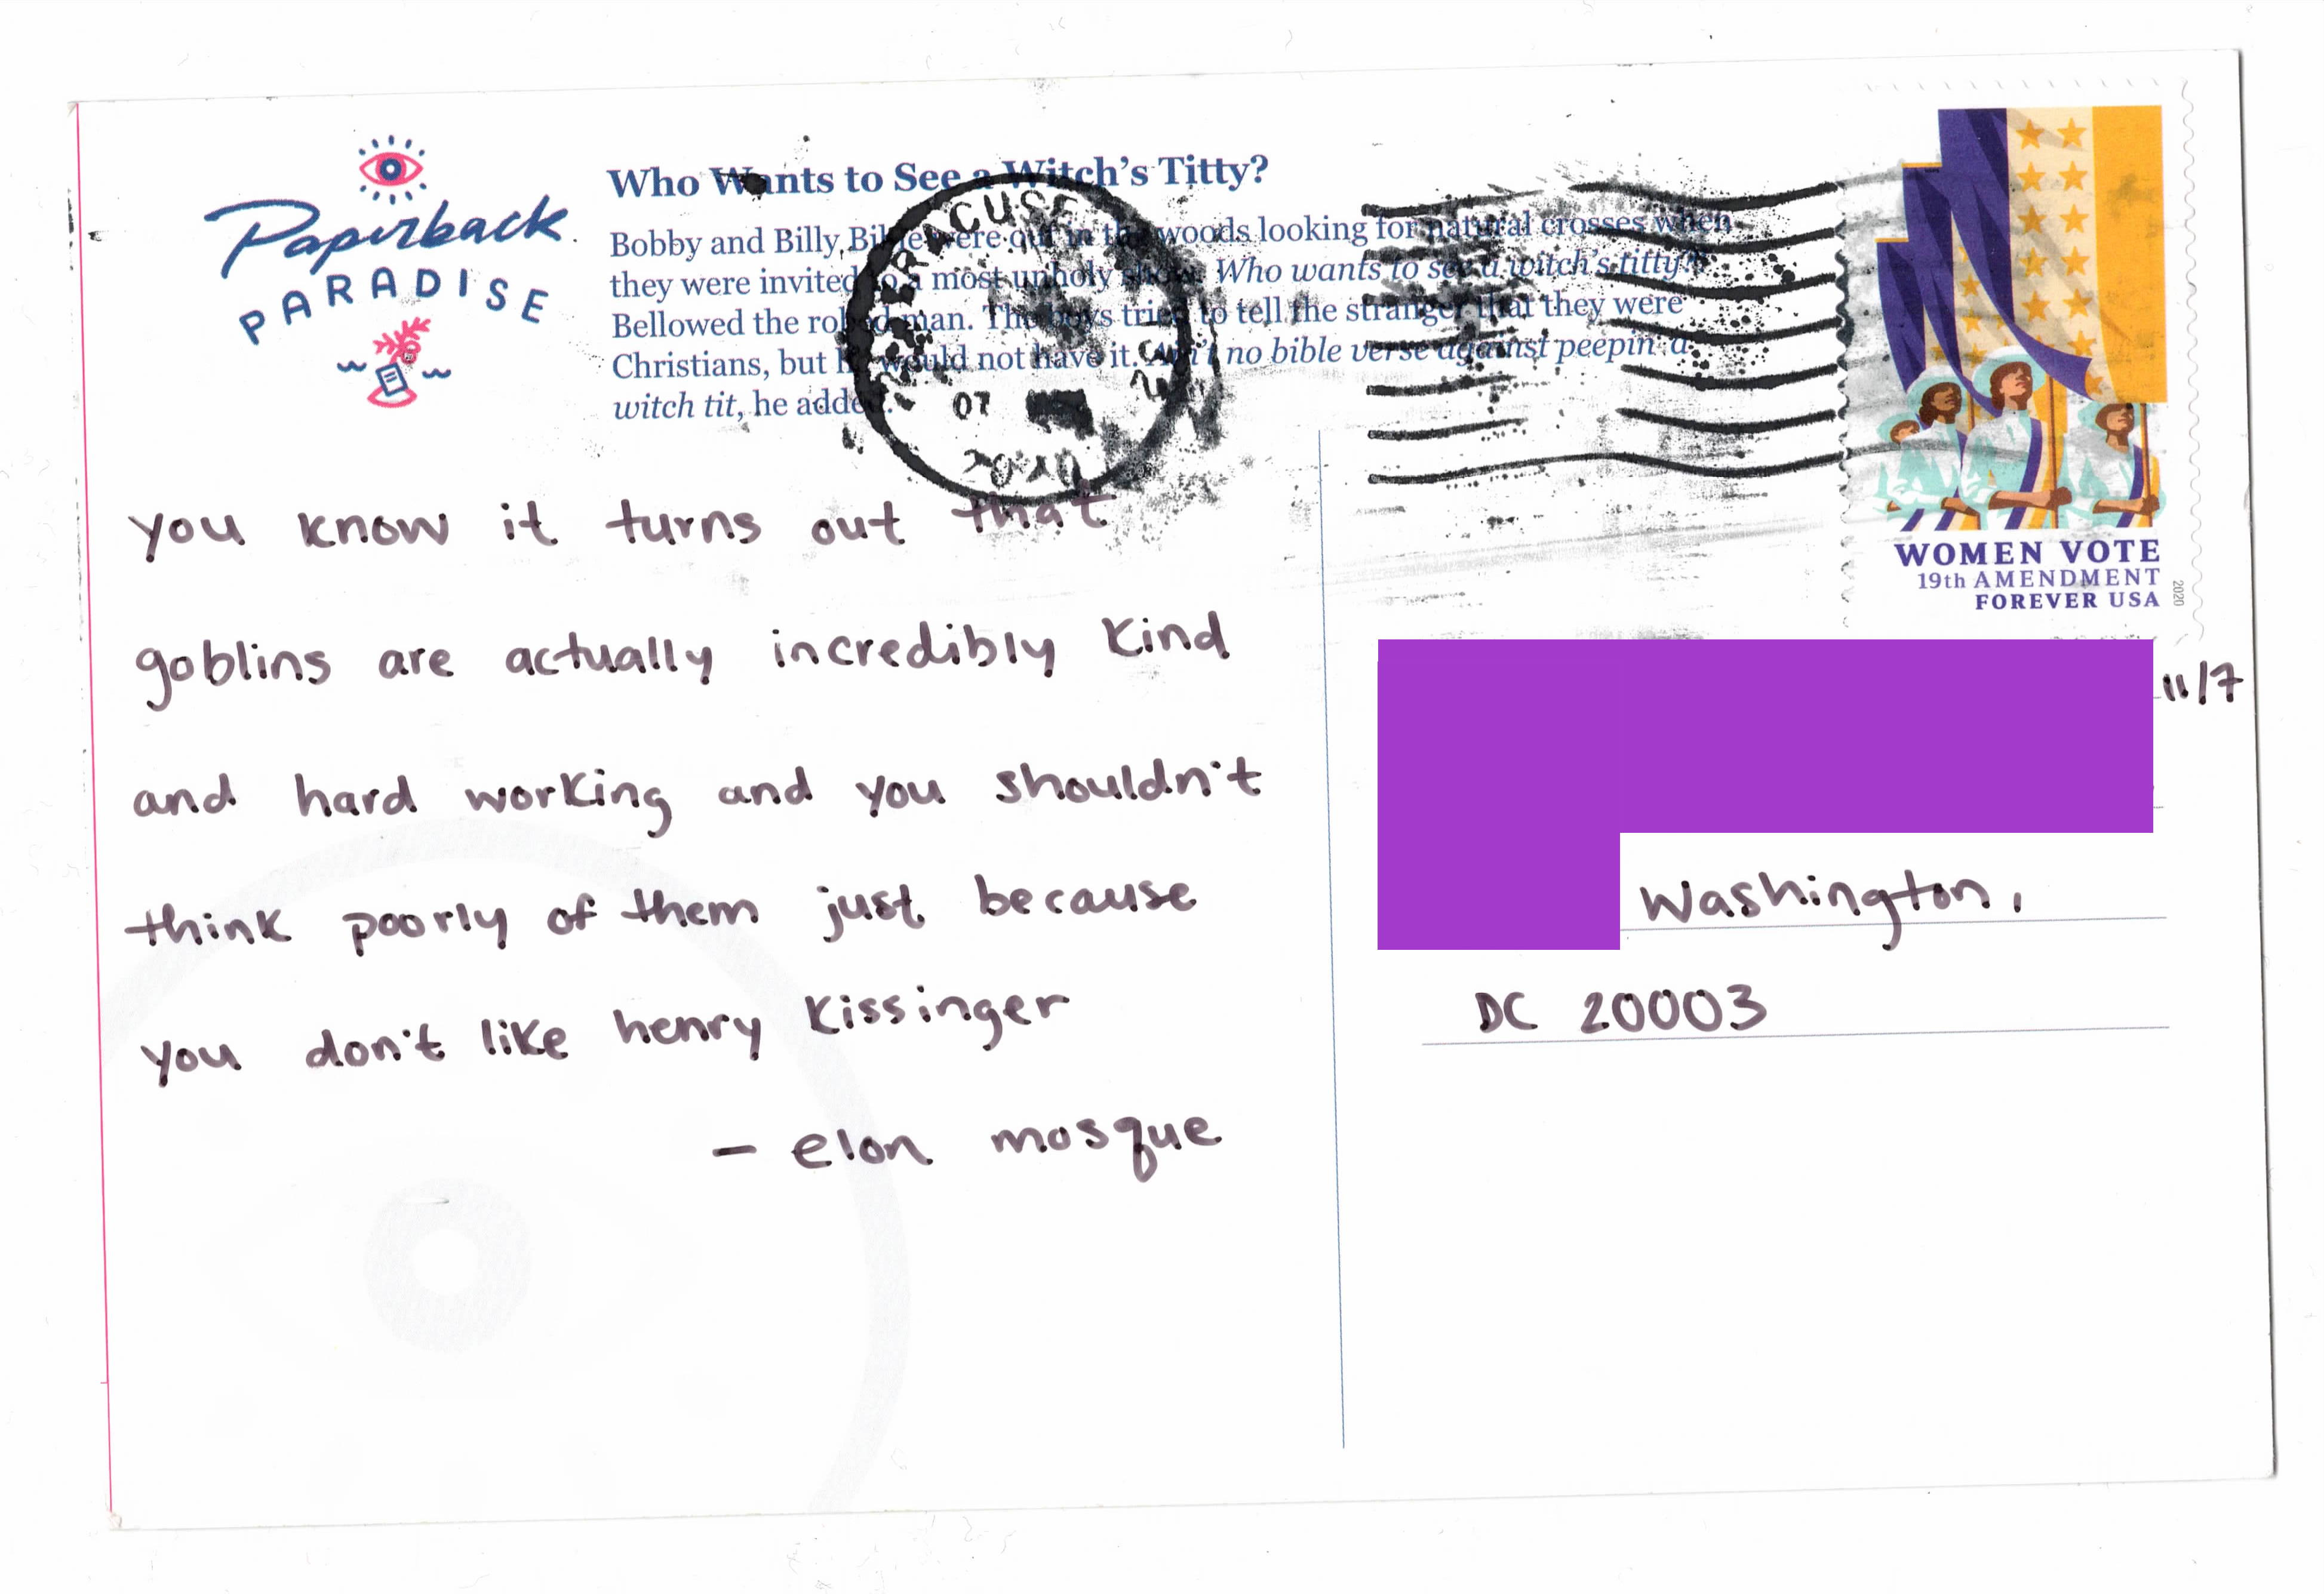 Paperback
PARADISE
Who Wants to See a Witch's Titty?
Bobby and Billy Bible were out in the woods looking for natural crosses when
they were invited to a most unholy show. Who wants to see a witch's titty?
Bellowed the robed man. The boys tried to tell the stranger that they were
Christians, but he would not have it. Ain't no bible verse against peepin' a
witch tit, he added.
07
2020
WOMEN VOTE
19th AMENDMENT
FOREVER USA
2020
you know it turns out that
goblins are actually incredibly kind
and hard working and you shouldn't
think poorly of them just because
you don't like henry kissinger
- elon mosque
11/7
Washington,
DC 20003